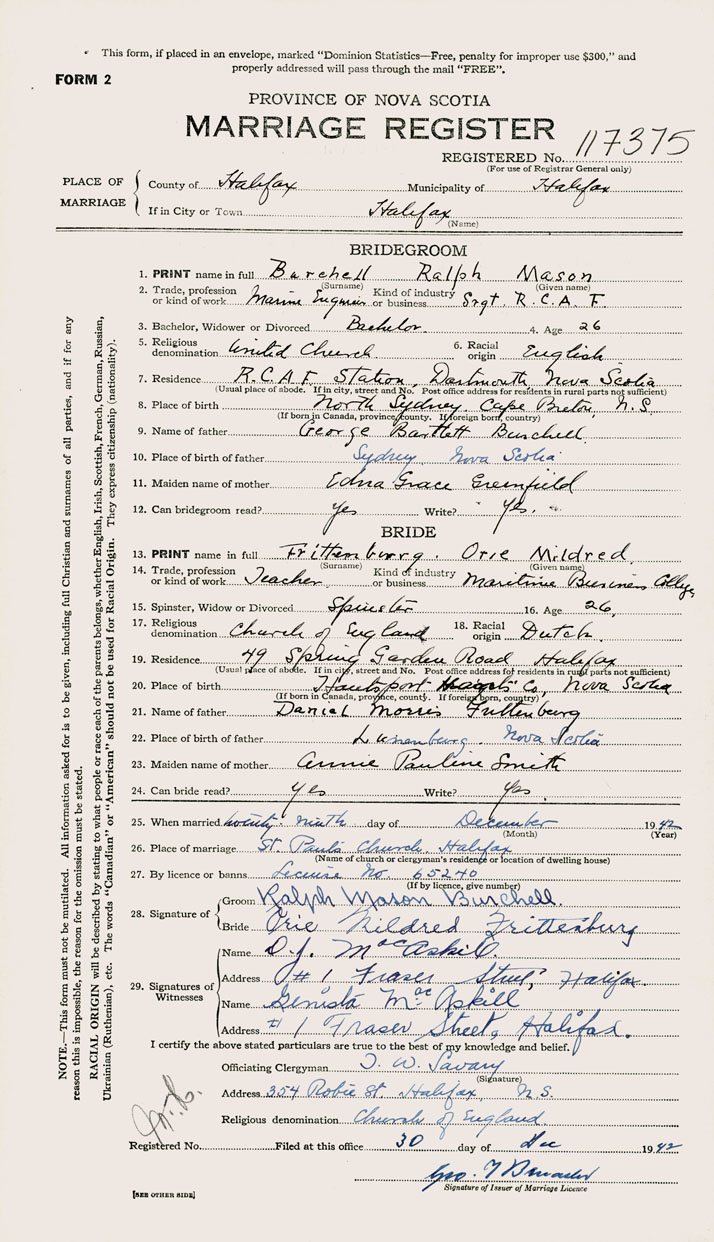 This form, if placed in an envelope, marked "Dominion Statistics—Free, penalty for improper use $300," and
properly addressed will pass through the mail "FREE".
FORM 2
PROVINCE OF NOVA SCOTIA
MARRIAGE REGISTER
REGISTERED No. 117375
(For use of Registrar General only)
PLACE OF MARRIAGE
County of Halifax Municipality of Halifax
If in City or Town Halifax
(Name)
BRIDEGROOM
1. PRINT name in full Burchell Ralph Mason
(Surname) (Given name)
2. Trade, profession or kind of work Marine Engineer Kind of industry or business Srgt. R.C.A.F.
3. Bachelor, Widower or Divorced Bachelor. 4. Age 26
5. Religious denomination United Church 6. Racial origin English
7. Residence R.C.A.F. Station, Dartmouth, Nova Scotia
(Usual place of abode. If in city, street and No. Post office address for residents in rural parts not sufficient)
8. Place of birth North Sydney, Cape Breton, N.S.
(If born in Canada, province, county. If foreign born, country)
9. Name of father George Bartlett Burchell
10. Place of birth of father Sydney Nova Scotia
11. Maiden name of mother Edna Grace Greenfield
12. Can bridegroom read? yes Write? yes.
BRIDE
13. PRINT name in full Frittenburg. Orie Mildred
(Surname) (Given name)
14. Trade, profession or kind of work Teacher Kind of industry or business Maritime Business College
15. Spinster, Widow or Divorced Spinster 16. Age 26,
17. Religious denomination Church of England 18. Racial origin Dutch.
19. Residence 49 Spring Garden Road Halifax
(Usual place of abode. If in city, street and No. Post office address for residents in rural parts not sufficient)
20. Place of birth Hantsport Hants Co, Nova Scotia
(If born in Canada, province, county. If foreign born, country)
21. Name of father Daniel Morris Frittenburg
22. Place of birth of father Lunenburg. Nova Scotia
23. Maiden name of mother Annie Pauline Smith
24. Can bride read? yes Write? yes.
25. When married twenty-ninth day of December 1942
(Month) (Year)
26. Place of marriage St. Paul's Church, Halifax
(Name of church or clergyman's residence or location of dwelling house)
27. By licence or banns License No. 65240
(If by licence, give number)
28. Signature of
Groom Ralph Mason Burchell.
Bride Orie Mildred Frittenburg
29. Signatures of Witnesses
Name D.J. MacAskill.
Address #1 Fraser Street, Halifax.
Name Genista MacAskill
Address #1 Fraser Street, Halifax.
I certify the above stated particulars are true to the best of my knowledge and belief.
Officiating Clergyman T. W. Savary
(Signature)
Address 354 Robie St. Halifax, N.S.
Religious denomination Church of England
Registered No. Filed at this office 30 day of Dec 1942
Signature of Issuer of Marriage Licence
[SEE OTHER SIDE]
NOTE.—This form must not be mutilated. All information asked for is to be given, including full Christian and surnames of all parties, and if for any
reason this is impossible, the reason for the omission must be stated.
RACIAL ORIGIN will be described by stating to what people or race each of the parents belongs, whether English, Irish, Scottish, French, German, Russian,
Ukrainian (Ruthenian), etc. The words "Canadian" or "American" should not be used for Racial Origin. They express citizenship (nationality).